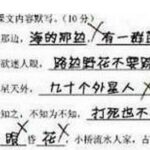 课文内容默写。(10分)
那边,海的那边,有一群蓝
欲迷人眼,路边野花不要踩
呈天外,九十个外星人
知之,不知为不知,打死也不
眼昏花,小桥流水人家,古